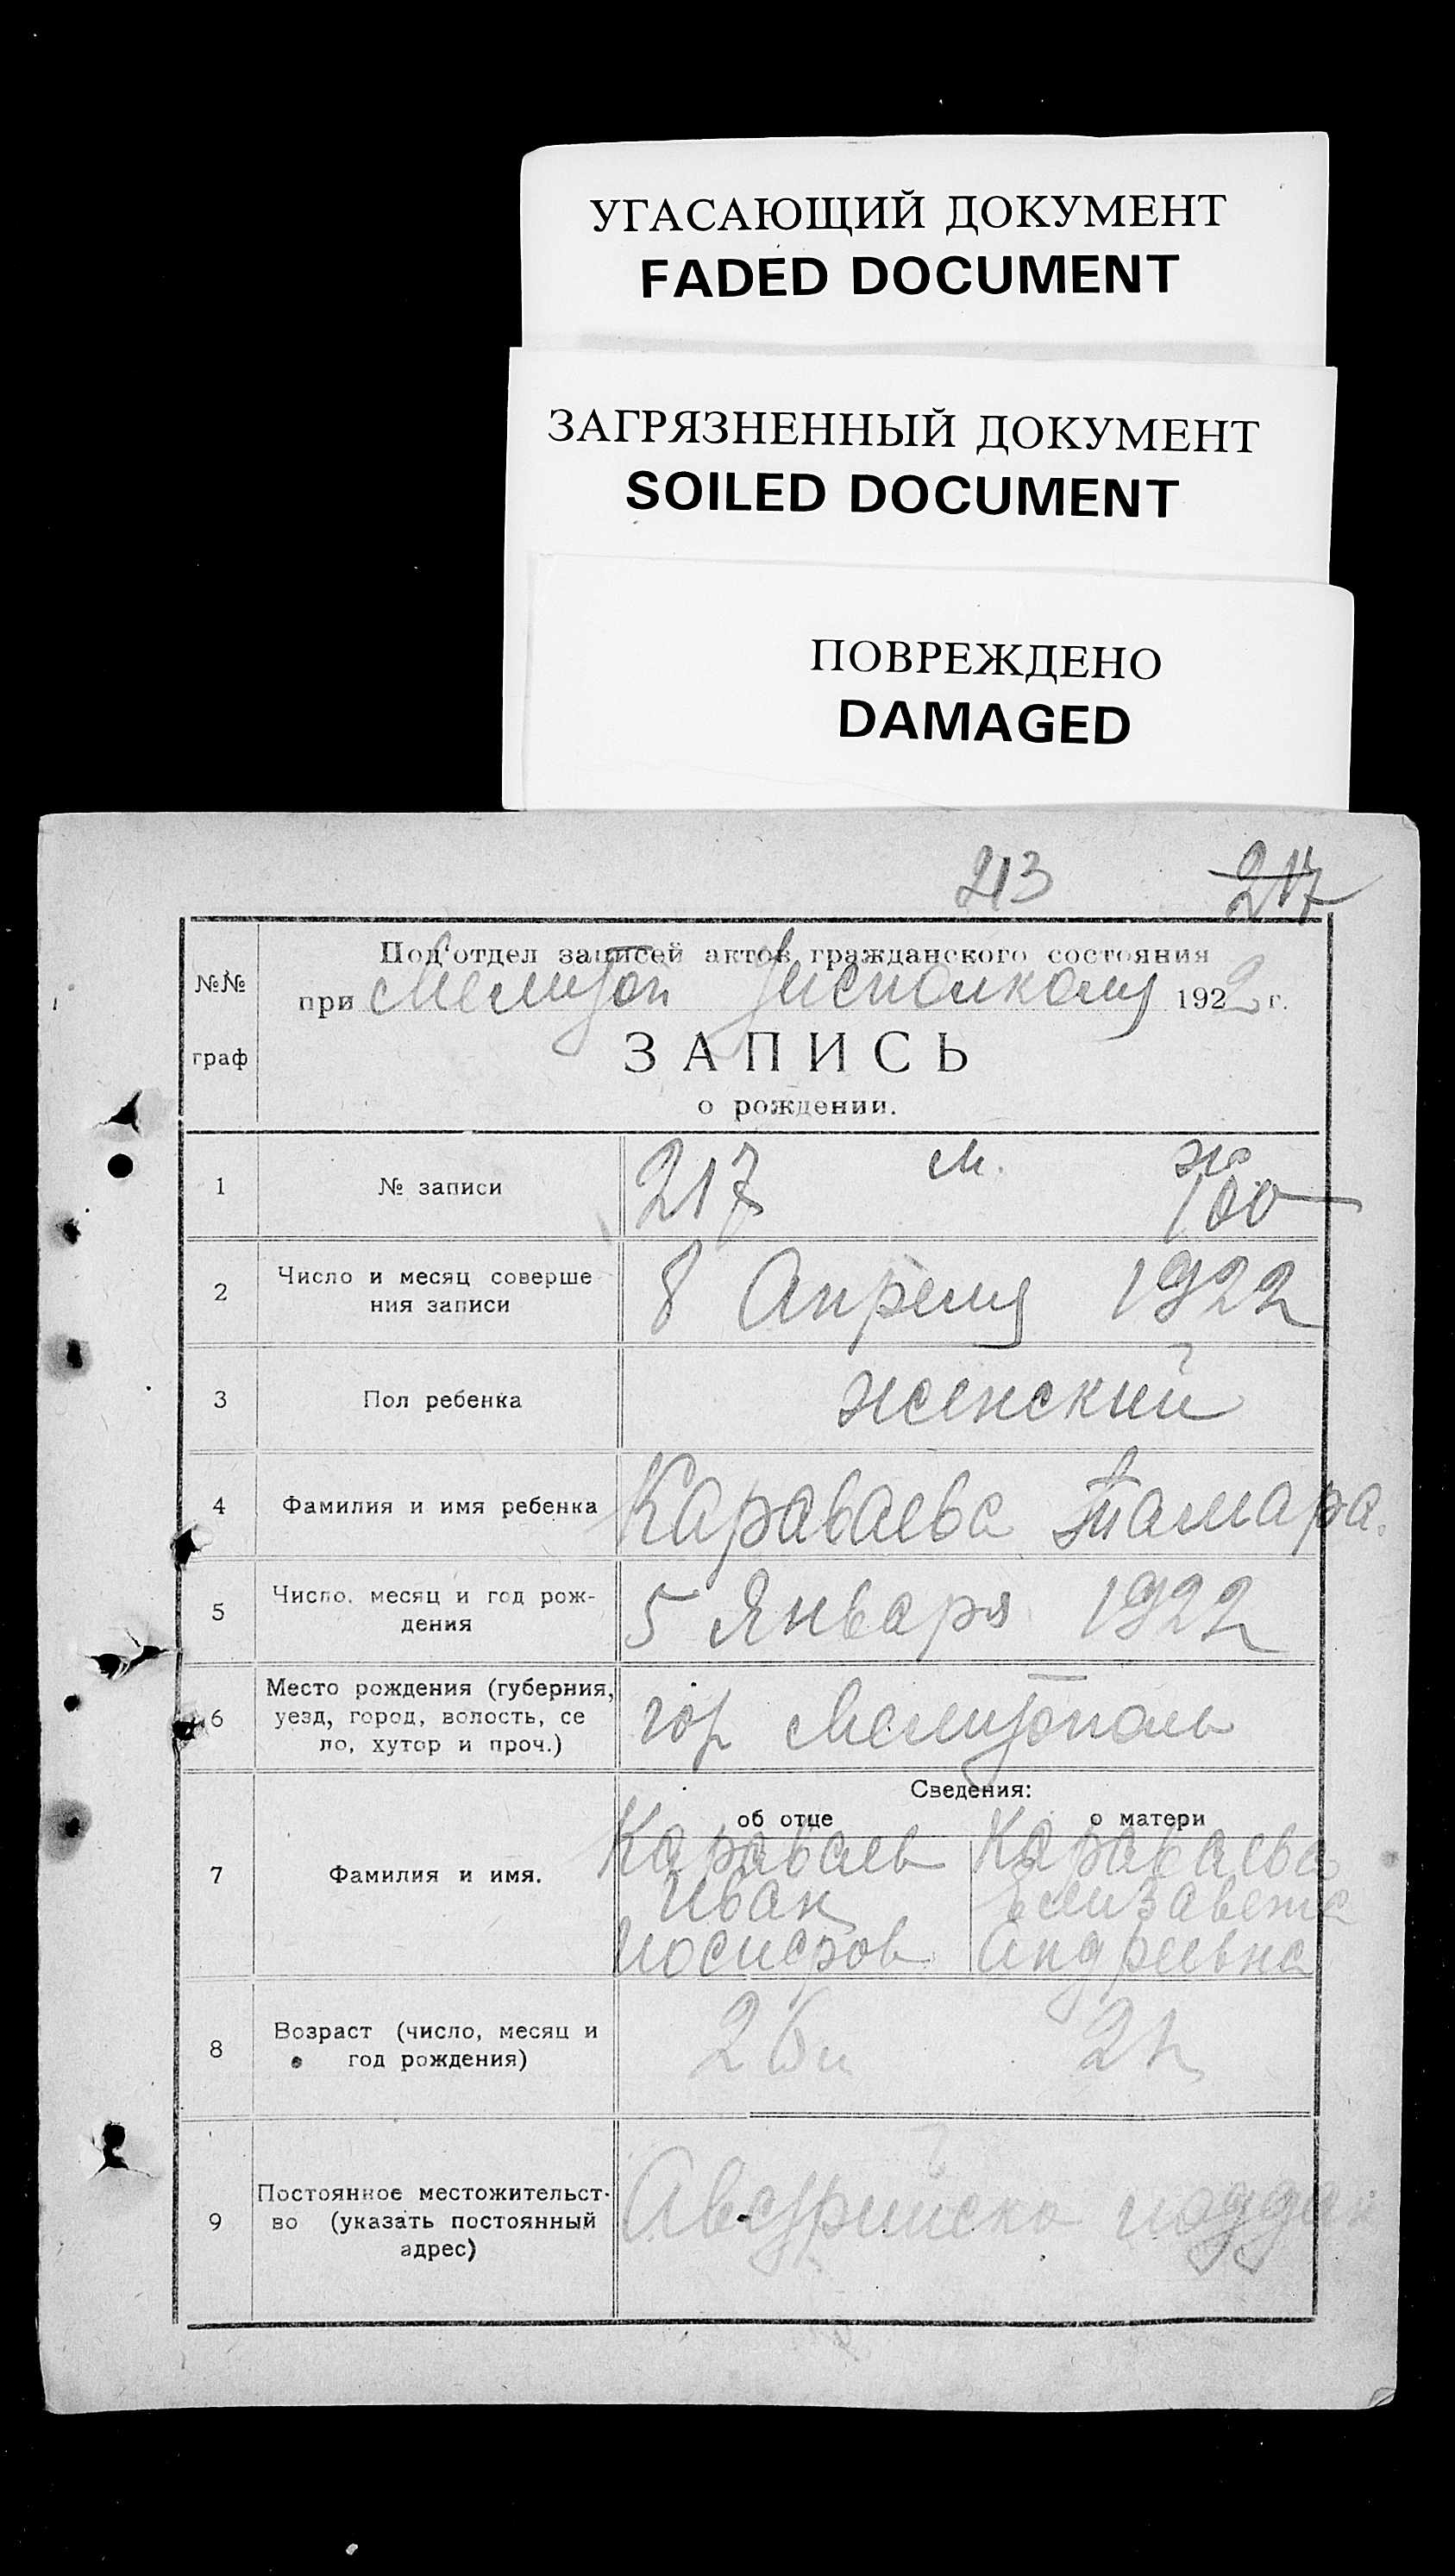 УГАСАЮЩИЙ ДОКУМЕНТ
FADED DOCUMENT
ЗАГРЯЗНЕННЫЙ ДОКУМЕНТ
SOILED DOCUMENT
ПОВРЕЖДЕНО
DAMAGED
213 217
№№ граф
Под'отдел записей актов гражданского состояния
при Мелитоп Уисполкому 1922 г.
ЗАПИСЬ
о рождении.
1 № записи 217 м. ж 100
2 Число и месяц соверше
ния записи 8 Апреля 1922
3 Пол ребенка женский
4 Фамилия и имя ребенка Караваева Тамара.
5 Число, месяц и год рож-
дения 5 Января 1922
6 Место рождения (губерния,
уезд, город, волость, се
ло, хутор и проч.) гор Мелитополь
Сведения:
об отце о матери
7 Фамилия и имя. Караваев Караваева
Иван Елизавета
Иосифов Андреевна
8 Возраст (число, месяц и
год рождения) 26 21
9 Постоянное местожительст-
во (указать постоянный
адрес) Австрийско поддан